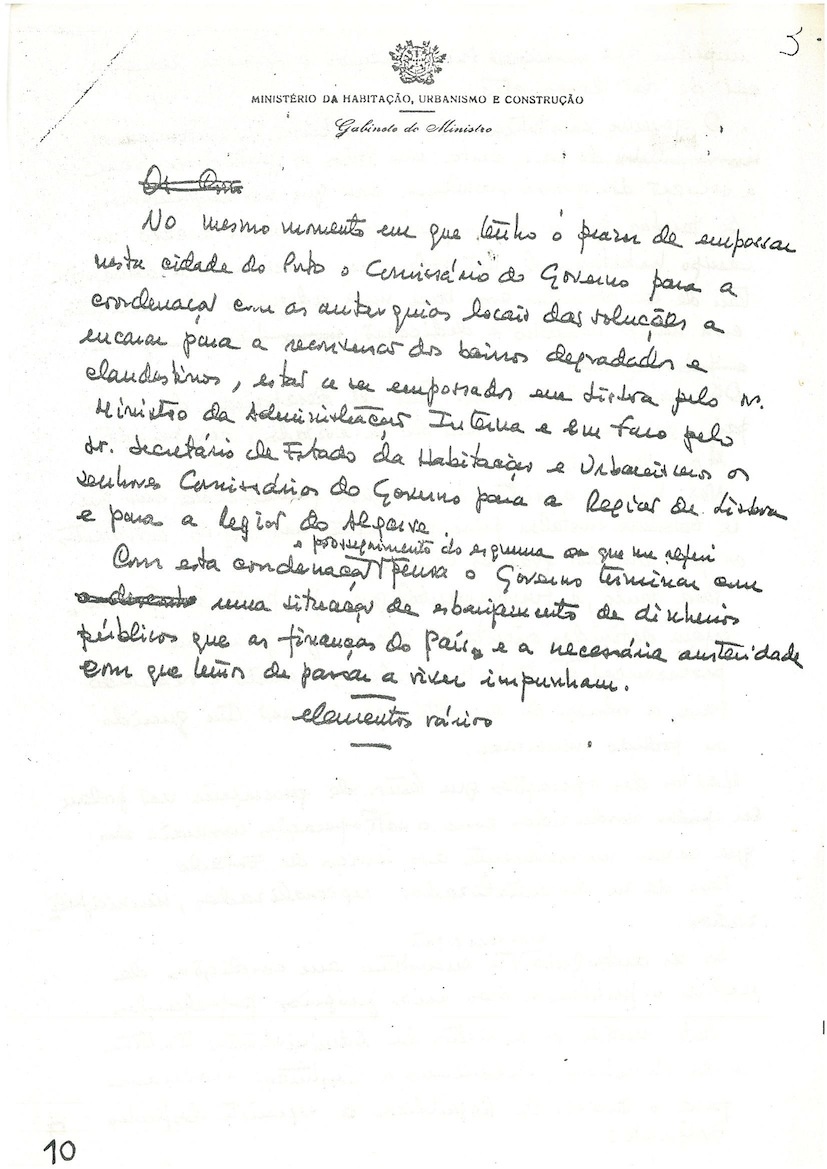 5.
MINISTÉRIO DA HABITAÇÃO, URBANISMO E CONSTRUÇÃO
Gabinete do Ministro
No mesmo momento em que tenho o prazer de empossar
nesta cidade do Porto o Comissário do Governo para a
coordenação com as autarquias locais das soluções a
encarar para a reconversão dos bairros degradados e
clandestinos, estão a ser empossados em Lisboa pelo sr.
Ministro da Administração Interna e em Faro pelo
sr. Secretário de Estado da Habitação e Urbanismo os
senhores Comissários do Governo para a Região de Lisboa
e para a Região do Algarve.
e prosseguimento do esquema a que me referi
Com esta coordenação pensa o Governo terminar com
uma situação de esbanjamento de dinheiros
públicos que as finanças do País e a necessária austeridade
com que temos de passar a viver impunham.
elementos vários
10